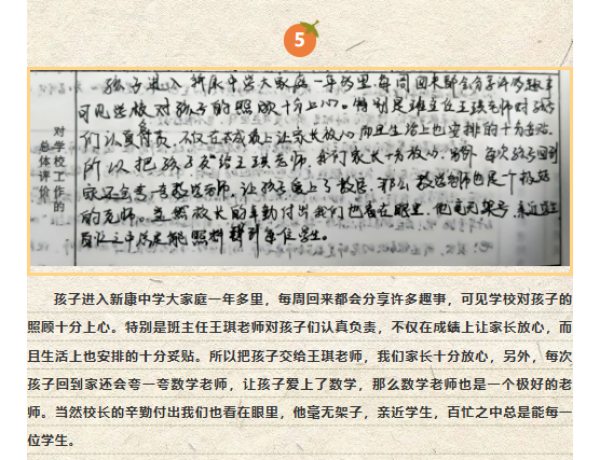 5
对学校工作的
总体评价
孩子进入新康中学大家庭一年多里,每周回来都会分享许多趣事
可见学校对孩子的照顾十分上心。特别是班主任王琪老师对孩子
们认真负责,不仅在成绩上让家长放心,而且生活上也安排的十分妥贴。
所以把孩子交给王琪老师,我们家长十分放心,另外,每次孩子回到
家还会夸一夸数学老师,让孩子爱上了数学,那么数学老师也是一个极好
的老师。当然校长的辛勤付出我们也看在眼里,他毫无架子,亲近学生
百忙之中总是能照料到每位学生。
孩子进入新康中学大家庭一年多里，每周回来都会分享许多趣事，可见学校对孩子的
照顾十分上心。特别是班主任王琪老师对孩子们认真负责，不仅在成绩上让家长放心，而
且生活上也安排的十分妥贴。所以把孩子交给王琪老师，我们家长十分放心，另外，每次
孩子回到家还会夸一夸数学老师，让孩子爱上了数学，那么数学老师也是一个极好的老
师。当然校长的辛勤付出我们也看在眼里，他毫无架子，亲近学生，百忙之中总是能每一
位学生。